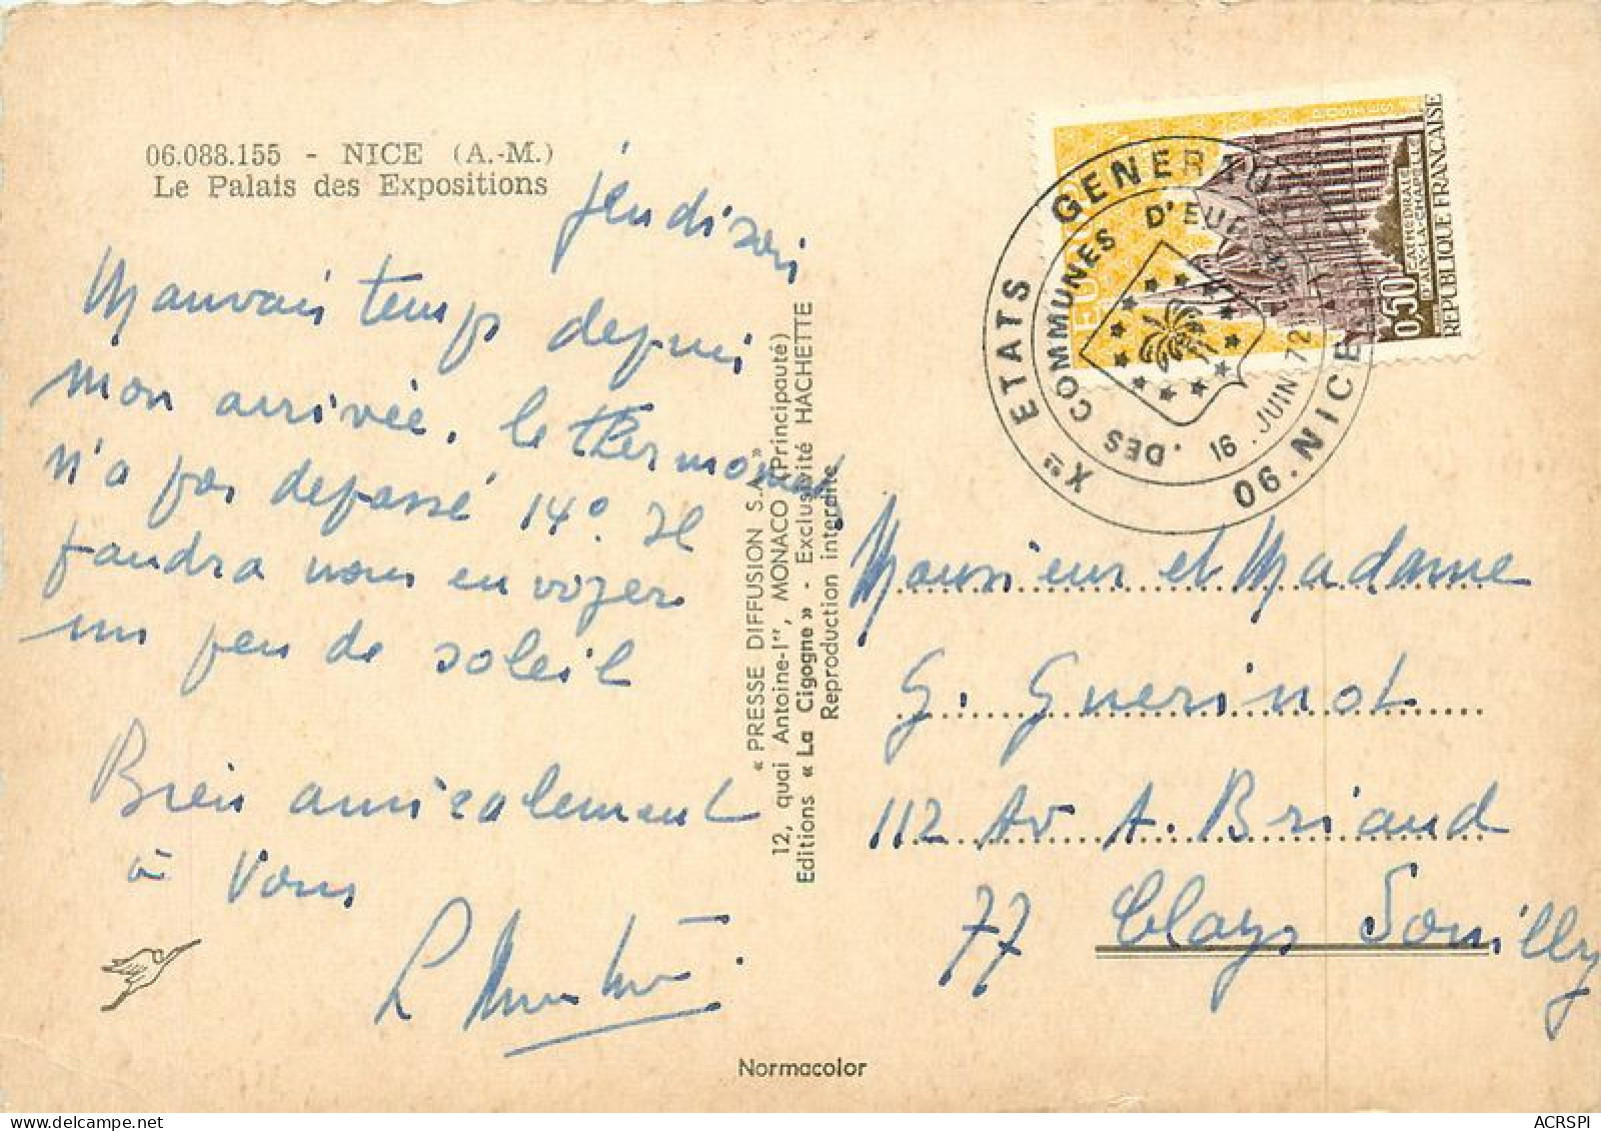 06.088.155 - NICE (A.-M.)
Le Palais des Expositions
jeudi soir
Mauvais temps depuis
mon arrivée. le thermomet
n'a pas depassé 14°. Il
faudra nous envoyer
un peu de soleil
Bien amicalement
à vous
« PRESSE DIFFUSION S.A. »
12, quai Antoine-1er, MONACO (Principauté)
Editions « La Cigogne » - Exclusivité HACHETTE
Reproduction interdite
Xes ETATS GENERAUX
DES COMMUNES D'EUROPE
16 JUIN 72
06. NICE
0,50
CATHEDRALE
D'AIX-LA-CHAPELLE
REPUBLIQUE FRANÇAISE
Monsieur et Madame
G. Guerinot
112 Av A. Briand
77 Claye Souilly
Normacolor
ACRSPI